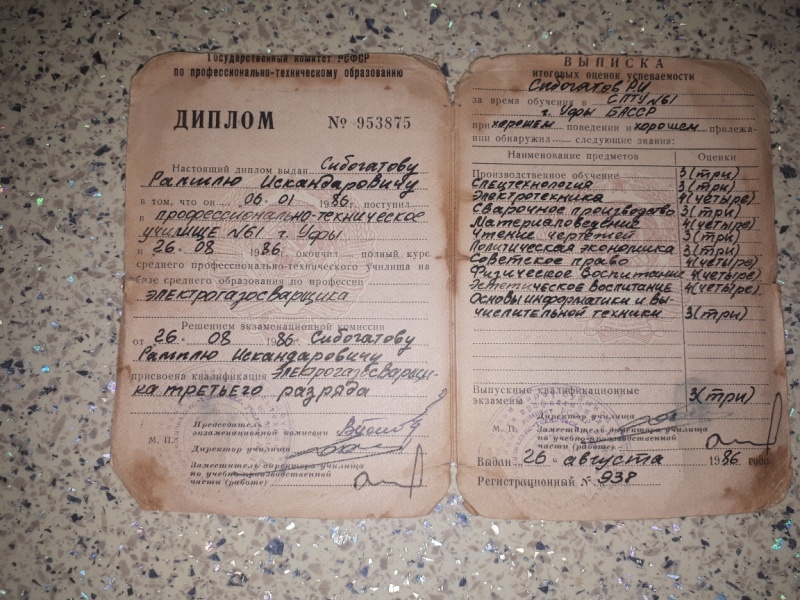 Государственный комитет РСФСР
по профессионально-техническому образованию
ДИПЛОМ № 953875
Настоящий диплом выдан Сибогатову
Рамилю Искандаровичу
в том, что он 06.01 1986 поступил
в профессионально-техническое
училище №61 г. Уфы
и 26.08 1986 окончил полный курс
среднего профессионально-технического училища на
базе среднего образования по профессии
электрогазосварщика
Решением экзаменационной комиссии
от 26.08 1986 Сибогатову
Рамилю Искандаровичу
присвоена квалификация электрогазосварщи-
ка третьего разряда
Председатель
экзаменационной комиссии
М. П. Директор училища
Заместитель директора училища
по учебно-производственной
части (работе)
ВЫПИСКА
итоговых оценок успеваемости
Сибогатов РИ
за время обучения в СПТУ №61
г. Уфы БАССР
при хорошем поведении и хорошем прилежа-
нии обнаружил следующие знания:
Наименование предметов Оценки
Производственное обучение 3 (три)
Спецтехнология 3 (три)
Электротехника 4 (четыре)
Сварочное производство 3 (три)
Материаловедение 4 (четыре)
Чтение чертежей 3 (три)
Политическая экономика 3 (три)
Советское право 4 (четыре)
Физическое воспитание 4 (четыре)
Эстетическое воспитание 4 (четыре)
Основы информатики и вы-
числительной техники 3 (три)
Выпускные квалификационные
экзамены 3 (три)
Директор училища
М. П. Заместитель директора училища
по учебно-производственной
части (работе)
Выдан 26 августа 1986 года
Регистрационный № 938